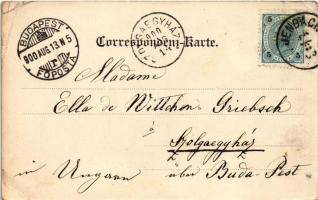 BUDAPEST
900 AUG 13 N 5
FŐPOSTA
GAEGYHÁZ
900
JENBACH
5 5
Correspondenz-Karte.
Madame
Ella de Wittchon-Griebsch
á
Szolgaegyház
in Ungarn über Buda-Pest